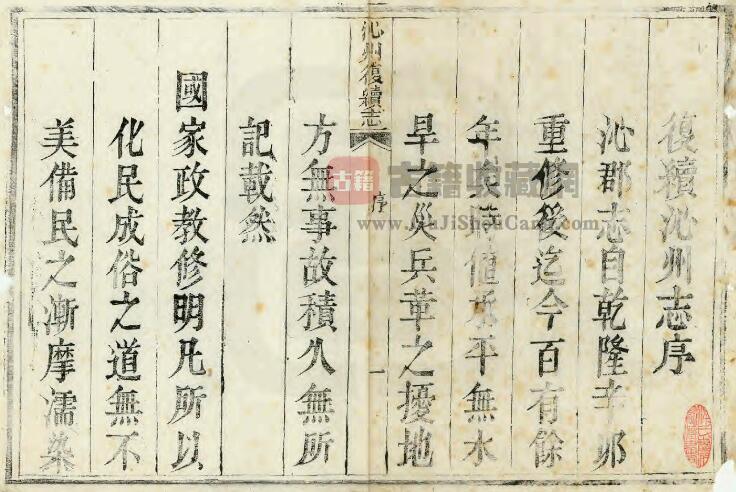 復續沁州志序
沁郡志自乾隆辛卯
重修後迄今百有餘
年矣時值承平無水
旱之災兵革之擾地
沁州復續志
序
一
方無事故積久無所
記載然
國家政教修明凡所以
化民成俗之道無不
美備民之漸摩濡染
古籍
古籍收藏网
www.GuJiShouCang.com